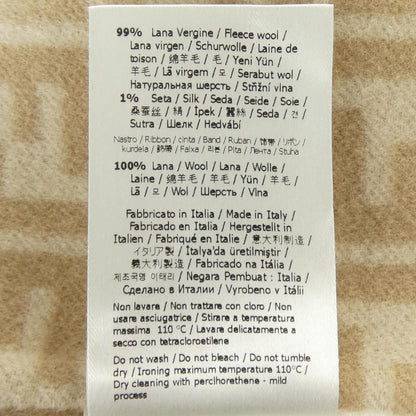 99% Lana Vergine / Fleece wool /
Lana virgen / Schurwolle / Laine de
toison / 绵羊毛 / 毛 / Yeni Yün /
羊毛 / Lã virgem / 모 / Serabut wol /
Натуральная шерсть / Střižní vlna
1% Seta / Silk / Seda / Seide / Soie /
桑蚕丝 / 絹 / İpek / 蠶絲 / Seda / 견 /
Sutra / Шелк / Hedvábí
Nastro / Ribbon / cinta / Band / Ruban / 饰带 / リボン /
kurdela / 飾帶 / Faixa / 리본 / Pita / Лента / Stuha
100% Lana / Wool / Lana / Wolle /
Laine / 绵羊毛 / 毛 / Yün / 羊毛 /
Lã / 모 / Wol / Шерсть / Vlna
Fabbricato in Italia / Made in Italy /
Fabricado en Italia / Hergestellt in
Italien / Fabriqué en Italie / 意大利制造
/ イタリア製 / İtalya'da üretilmiştir /
義大利製造 / Fabricado na Itália /
제조국명 이태리 / Negara Pembuat : Italia /
Сделано в Италии / Vyrobeno v Itálii
Non lavare / Non trattare con cloro / Non
usare asciugatrice / Stirare a temperatura
massima 110 °C / Lavare delicatamente a
secco con tetracloroetilene
Do not wash / Do not bleach / Do not tumble
dry / Ironing maximum temperature 110°C /
Dry cleaning with perclhorethene - mild
process